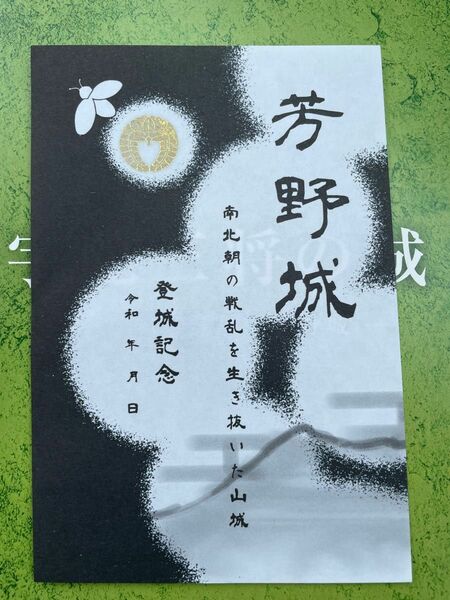 芳野城
南北朝の戦乱を生き抜いた山城
登城記念
令和 年 月 日
将の
城